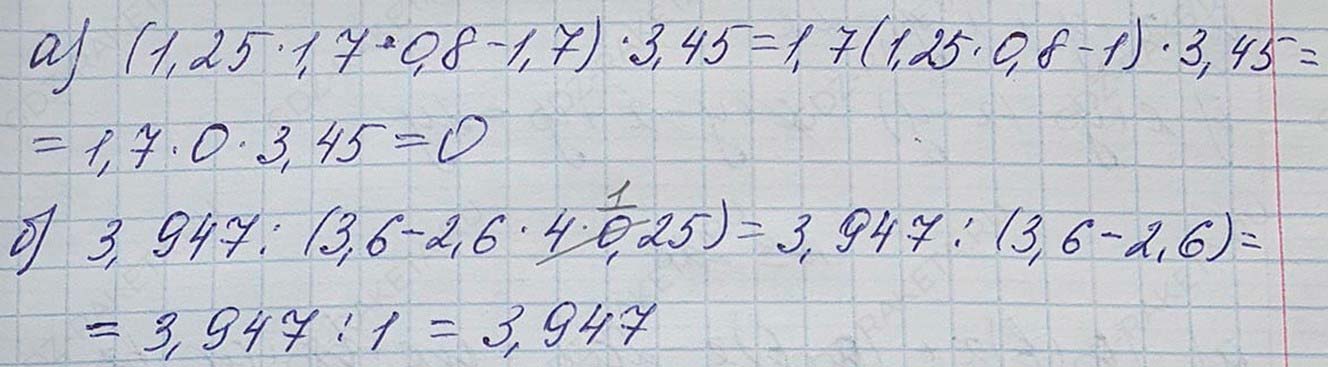 а) (1,25·1,7·0,8-1,7)·3,45=1,7(1,25·0,8-1)·3,45=
=1,7·0·3,45=0
1
б) 3,947:(3,6-2,6·4·0,25)=3,947:(3,6-2,6)=
=3,947:1=3,947